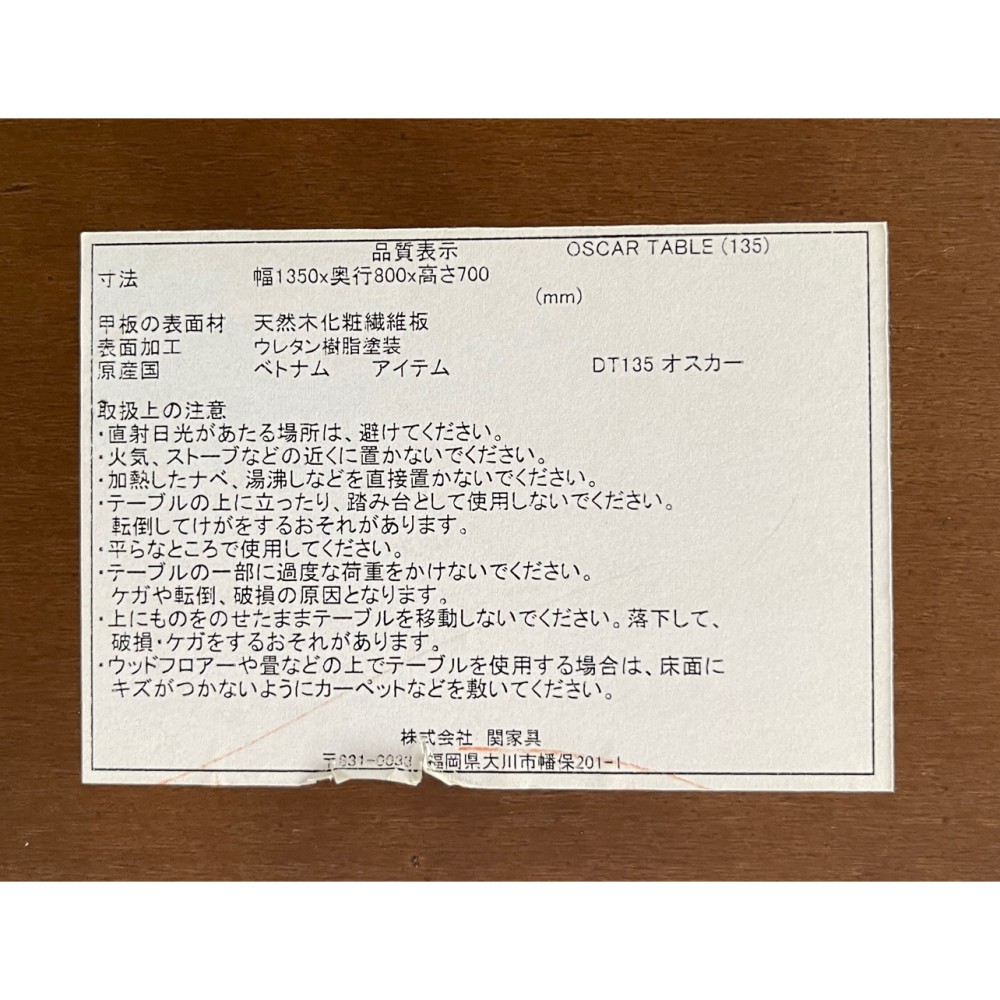 品質表示 OSCAR TABLE (135)
寸法 幅1350x奥行800x高さ700
(mm)
甲板の表面材 天然木化粧繊維板
表面加工 ウレタン樹脂塗装
原産国 ベトナム アイテム DT135 オスカー
取扱上の注意
・直射日光があたる場所は、避けてください。
・火気、ストーブなどの近くに置かないでください。
・加熱したナベ、湯沸しなどを直接置かないでください。
・テーブルの上に立ったり、踏み台として使用しないでください。
転倒してけがをするおそれがあります。
・平らなところで使用してください。
・テーブルの一部に過度な荷重をかけないでください。
ケガや転倒、破損の原因となります。
・上にものをのせたままテーブルを移動しないでください。落下して、
破損・ケガをするおそれがあります。
・ウッドフロアーや畳などの上でテーブルを使用する場合は、床面に
キズがつかないようにカーペットなどを敷いてください。
株式会社 関家具
〒831-0033 福岡県大川市幡保201-1